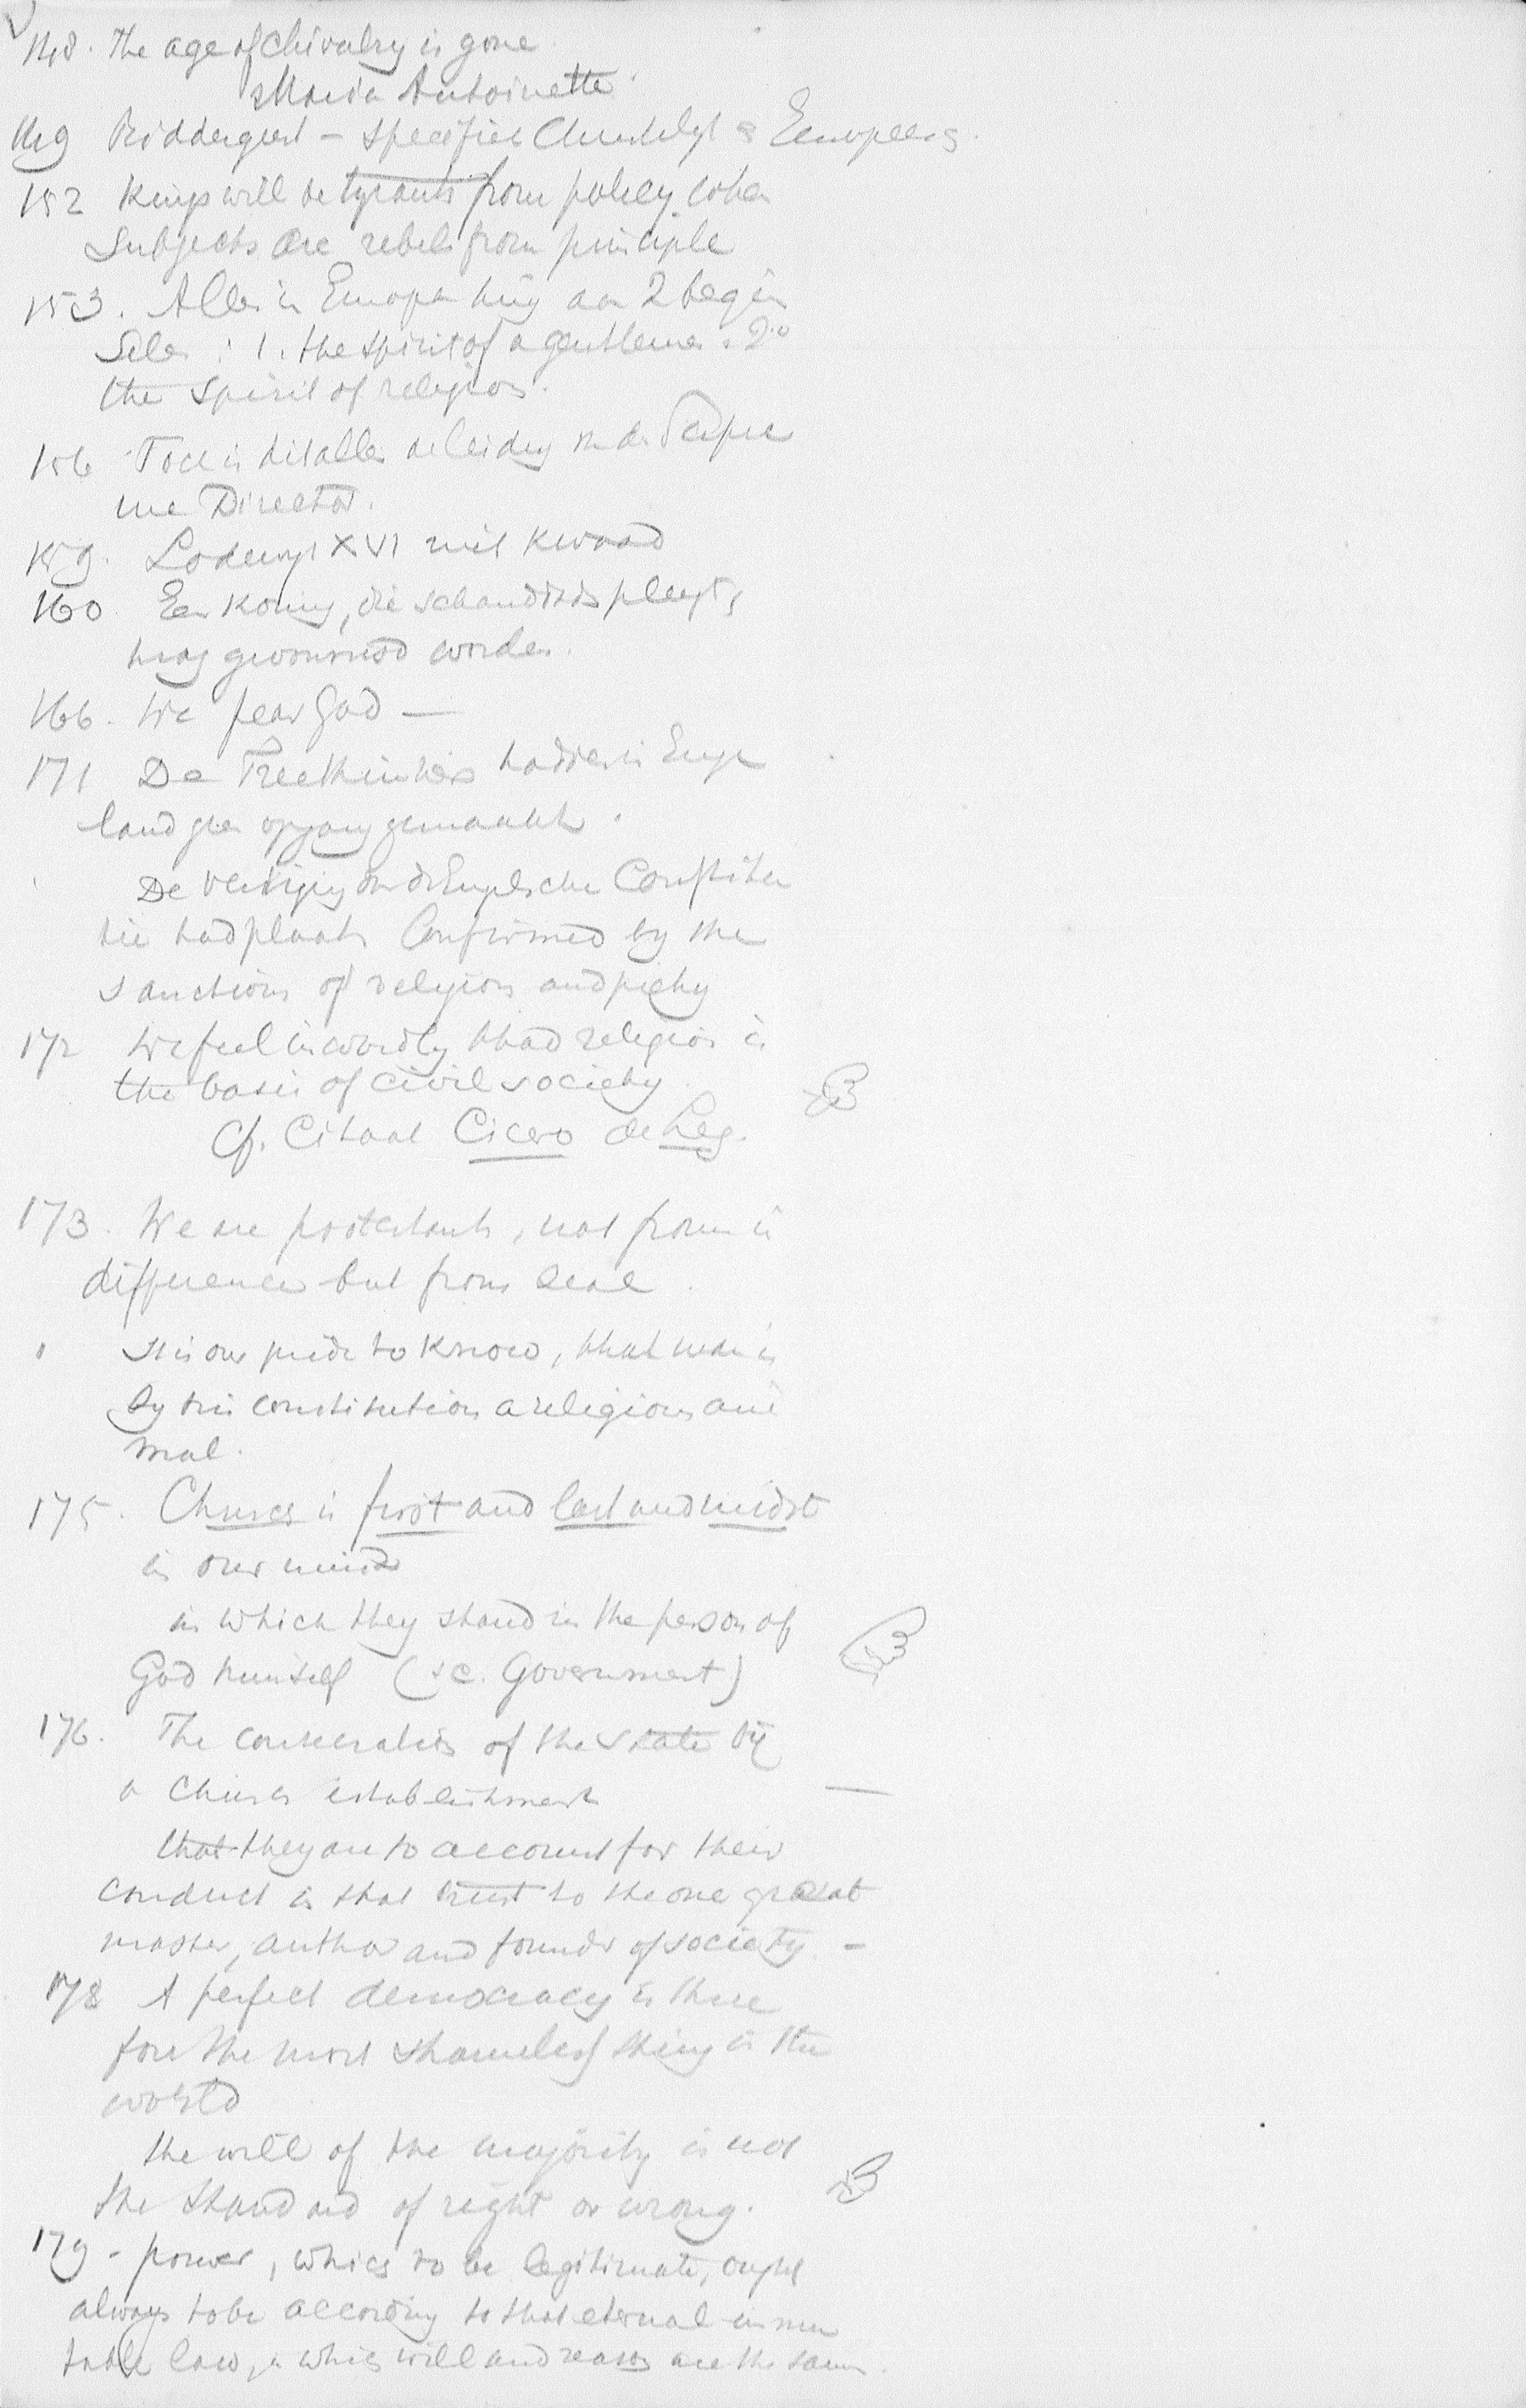 148. The age of chivalry is gone
Maria Antoinette.
149 Riddergeest – specifiek Christelyk & Europees.
152 Kings will be tyrants from policy when
Subjects are rebels from principle
153. Alles in Europa hing aan 2 begin
selen : 1. the spirit of a gentleman. 2o
the spirit of religion.
156 Toen is dit alles
Director.
159. Lodewyk XVI niet kwaad
160 Een koning, die schanddaads pleegt,
mag gewurmd worden.
166. We fear God —
171 De Freethinkers hadden in Enge
land geen opgang gemaakt.
De vestiging van de Engelsche Constitu
tie had plaats Confirmed by the
sanctions of religion and piety
172 We feel inwardly that religion is
the basis of civil society.
Cf. Citaat Cicero de Leg.
173. We are protestants, not from in
difference but from zeal.
It is our pride to know, that man is
by his constitution a religious ani
mal.
175. Church is first and last and midst
in our minds
in which they stand in the person of
God himself (sc. Government)
176. The consecration of the state by
a Church establishment
that they are to account for their
conduct in that trust to the one great
master, author and founder of society –
178 A perfect democracy is there
fore the most shameless thing in the
world
the will of the majority is not
the standard of right or wrong.
179 - power, which to be legitimate, ought
always to be according to that eternal immu
table law, in which will and reason are the same.